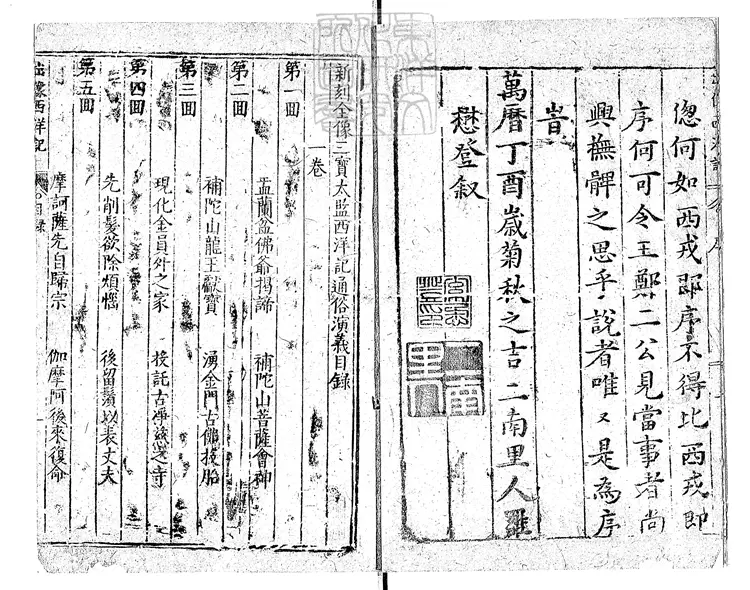 傯何如西戎即序不得比西戎即
序何可令王鄭二公見當事者尚
興撫髀之思乎說者唯又是為序
旹
萬曆丁酉歲菊秋之吉二南里人羅
懋登叙
新刻全像三寶太監西洋記通俗演義目錄
一卷
第一囬
盂蘭盆佛爺揭諦 補陀山菩薩會神
第二囬
補陀山龍王獻寶 湧金門古佛投胎
第三囬
現化金員外之家 投託古淨慈之寺
第四囬
先削髮欲除煩惱 後留鬚以表丈夫
第五囬
摩訶薩先自歸宗 伽摩阿後來復命
出像西洋記 目錄